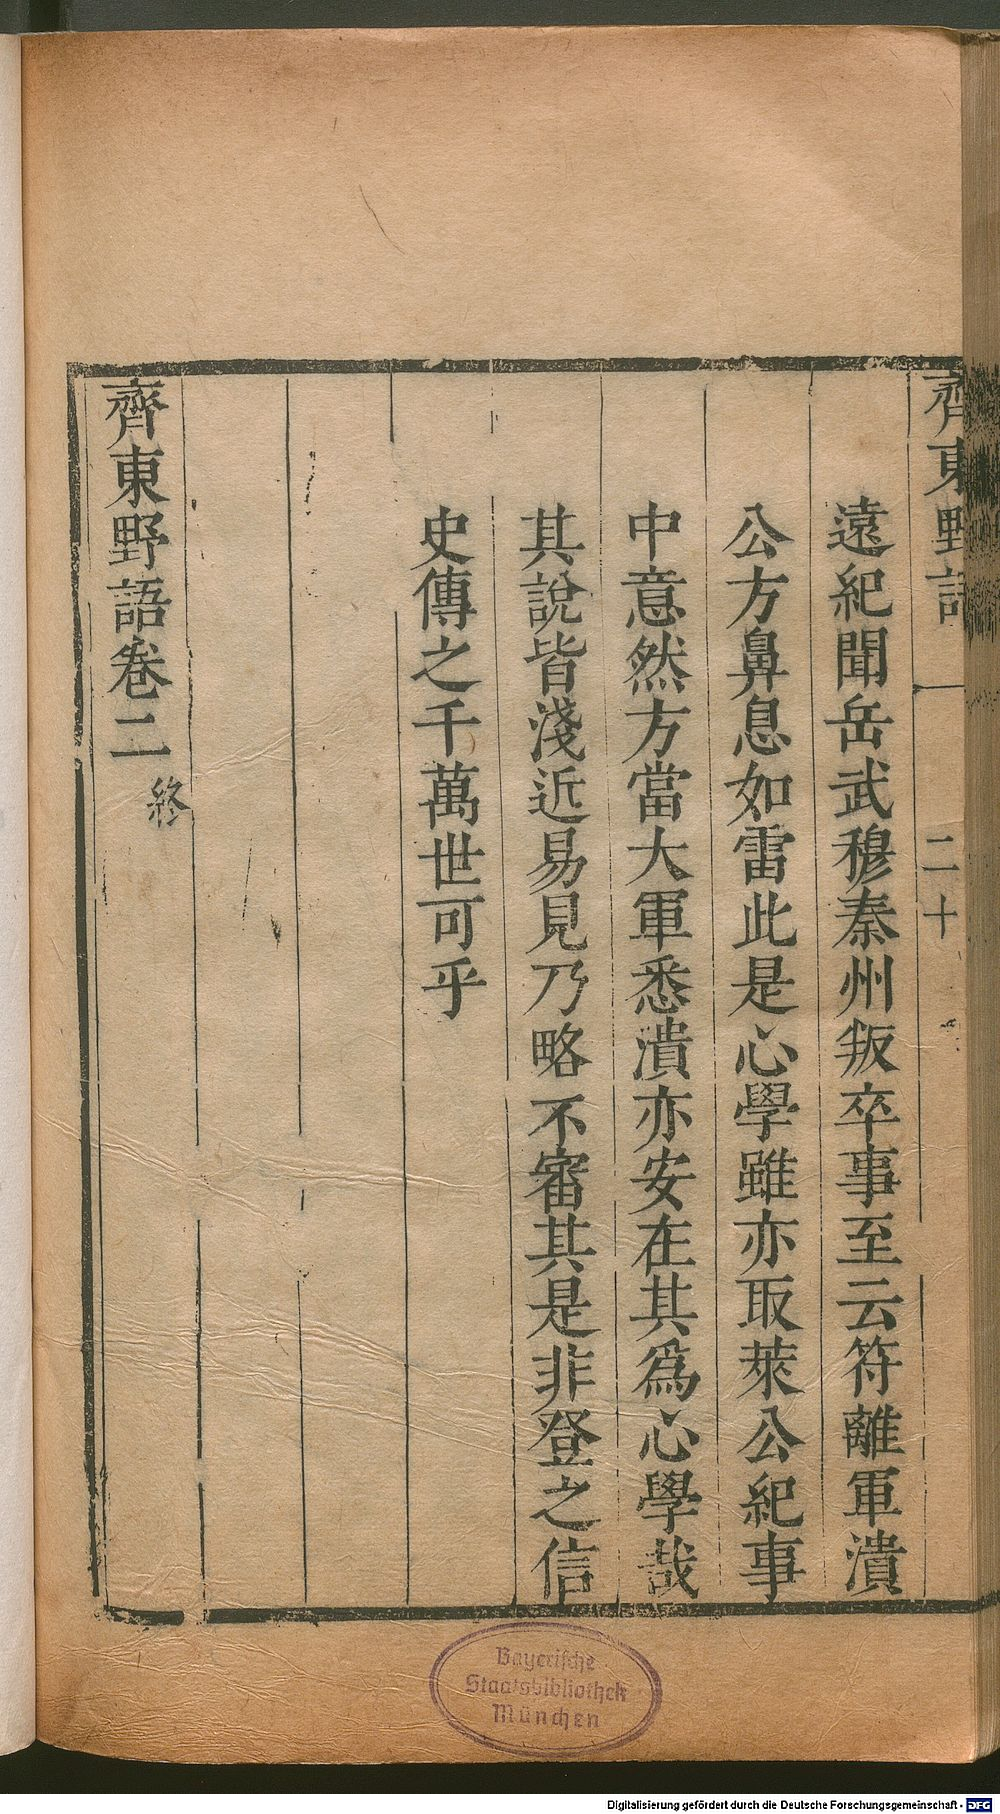 齊東野語
二十
遠紀聞岳武穆秦州叛卒事至云符離軍潰
公方鼻息如雷此是心學雖亦取萊公紀事
中意然方當大軍悉潰亦安在其爲心學哉
其說皆淺近易見乃略不審其是非登之信
史傳之千萬世可乎
齊東野語卷二
終
Bayerische
Staatsbibliothek
München
Digitalisierung gefördert durch die Deutsche Forschungsgemeinschaft - DFG